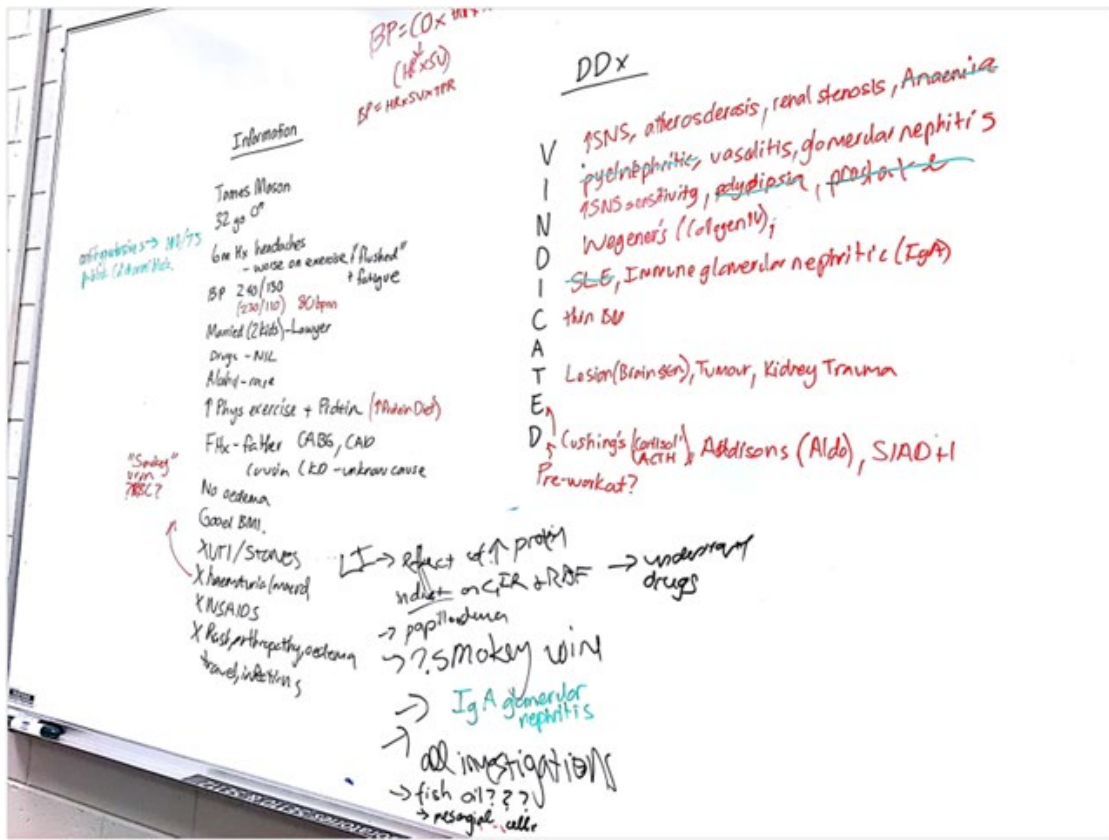 BP = CO x
(HR x SV)
BP = HR x SV x TPR
Information
James Mason
32 yo ♂
6m Hx headaches
- worse on exercise / "flushed"
+ fatigue
BP 240/130
(230/110) 80bpm
Married (2 kids) - Lawyer
Drugs - NIL
Alcohol - rare
↑ Phys exercise + Protein (↑ Protein Diet)
FHx - father CABG, CAD
Cousin CKD - unknown cause
No oedema
Good BMI.
X UTI/Stones
X haematuria/macro
X NSAIDS
X Rash, arthropathy, oedema
travel, infections
"Smokey"
urin
?RBC?
DDx
V ↑SNS, atherosclerosis, renal stenosis, Anaemia
I pyelnephritic, vasulitis, glomerular nephitis
N ↑SNS sensitivity, polydipsia,
D Wegener's (Col gen IV);
I SLE, Immune glomerular nephritic (IgA)
C thin BM
A
T Lesion (Brain stem), Tumour, Kidney Trauma
E
D Cushing's (Cortisol ACTH), Addisons (Aldo), SIADH
Pre-workout?
LI → effect of ↑ protein
on GFR & RBF → understand
drugs
→ papilloedema
→ ?smokey urine
→ IgA glomerular
nephritis
→ all investigations
→ fish oil???
→ mesangial cells